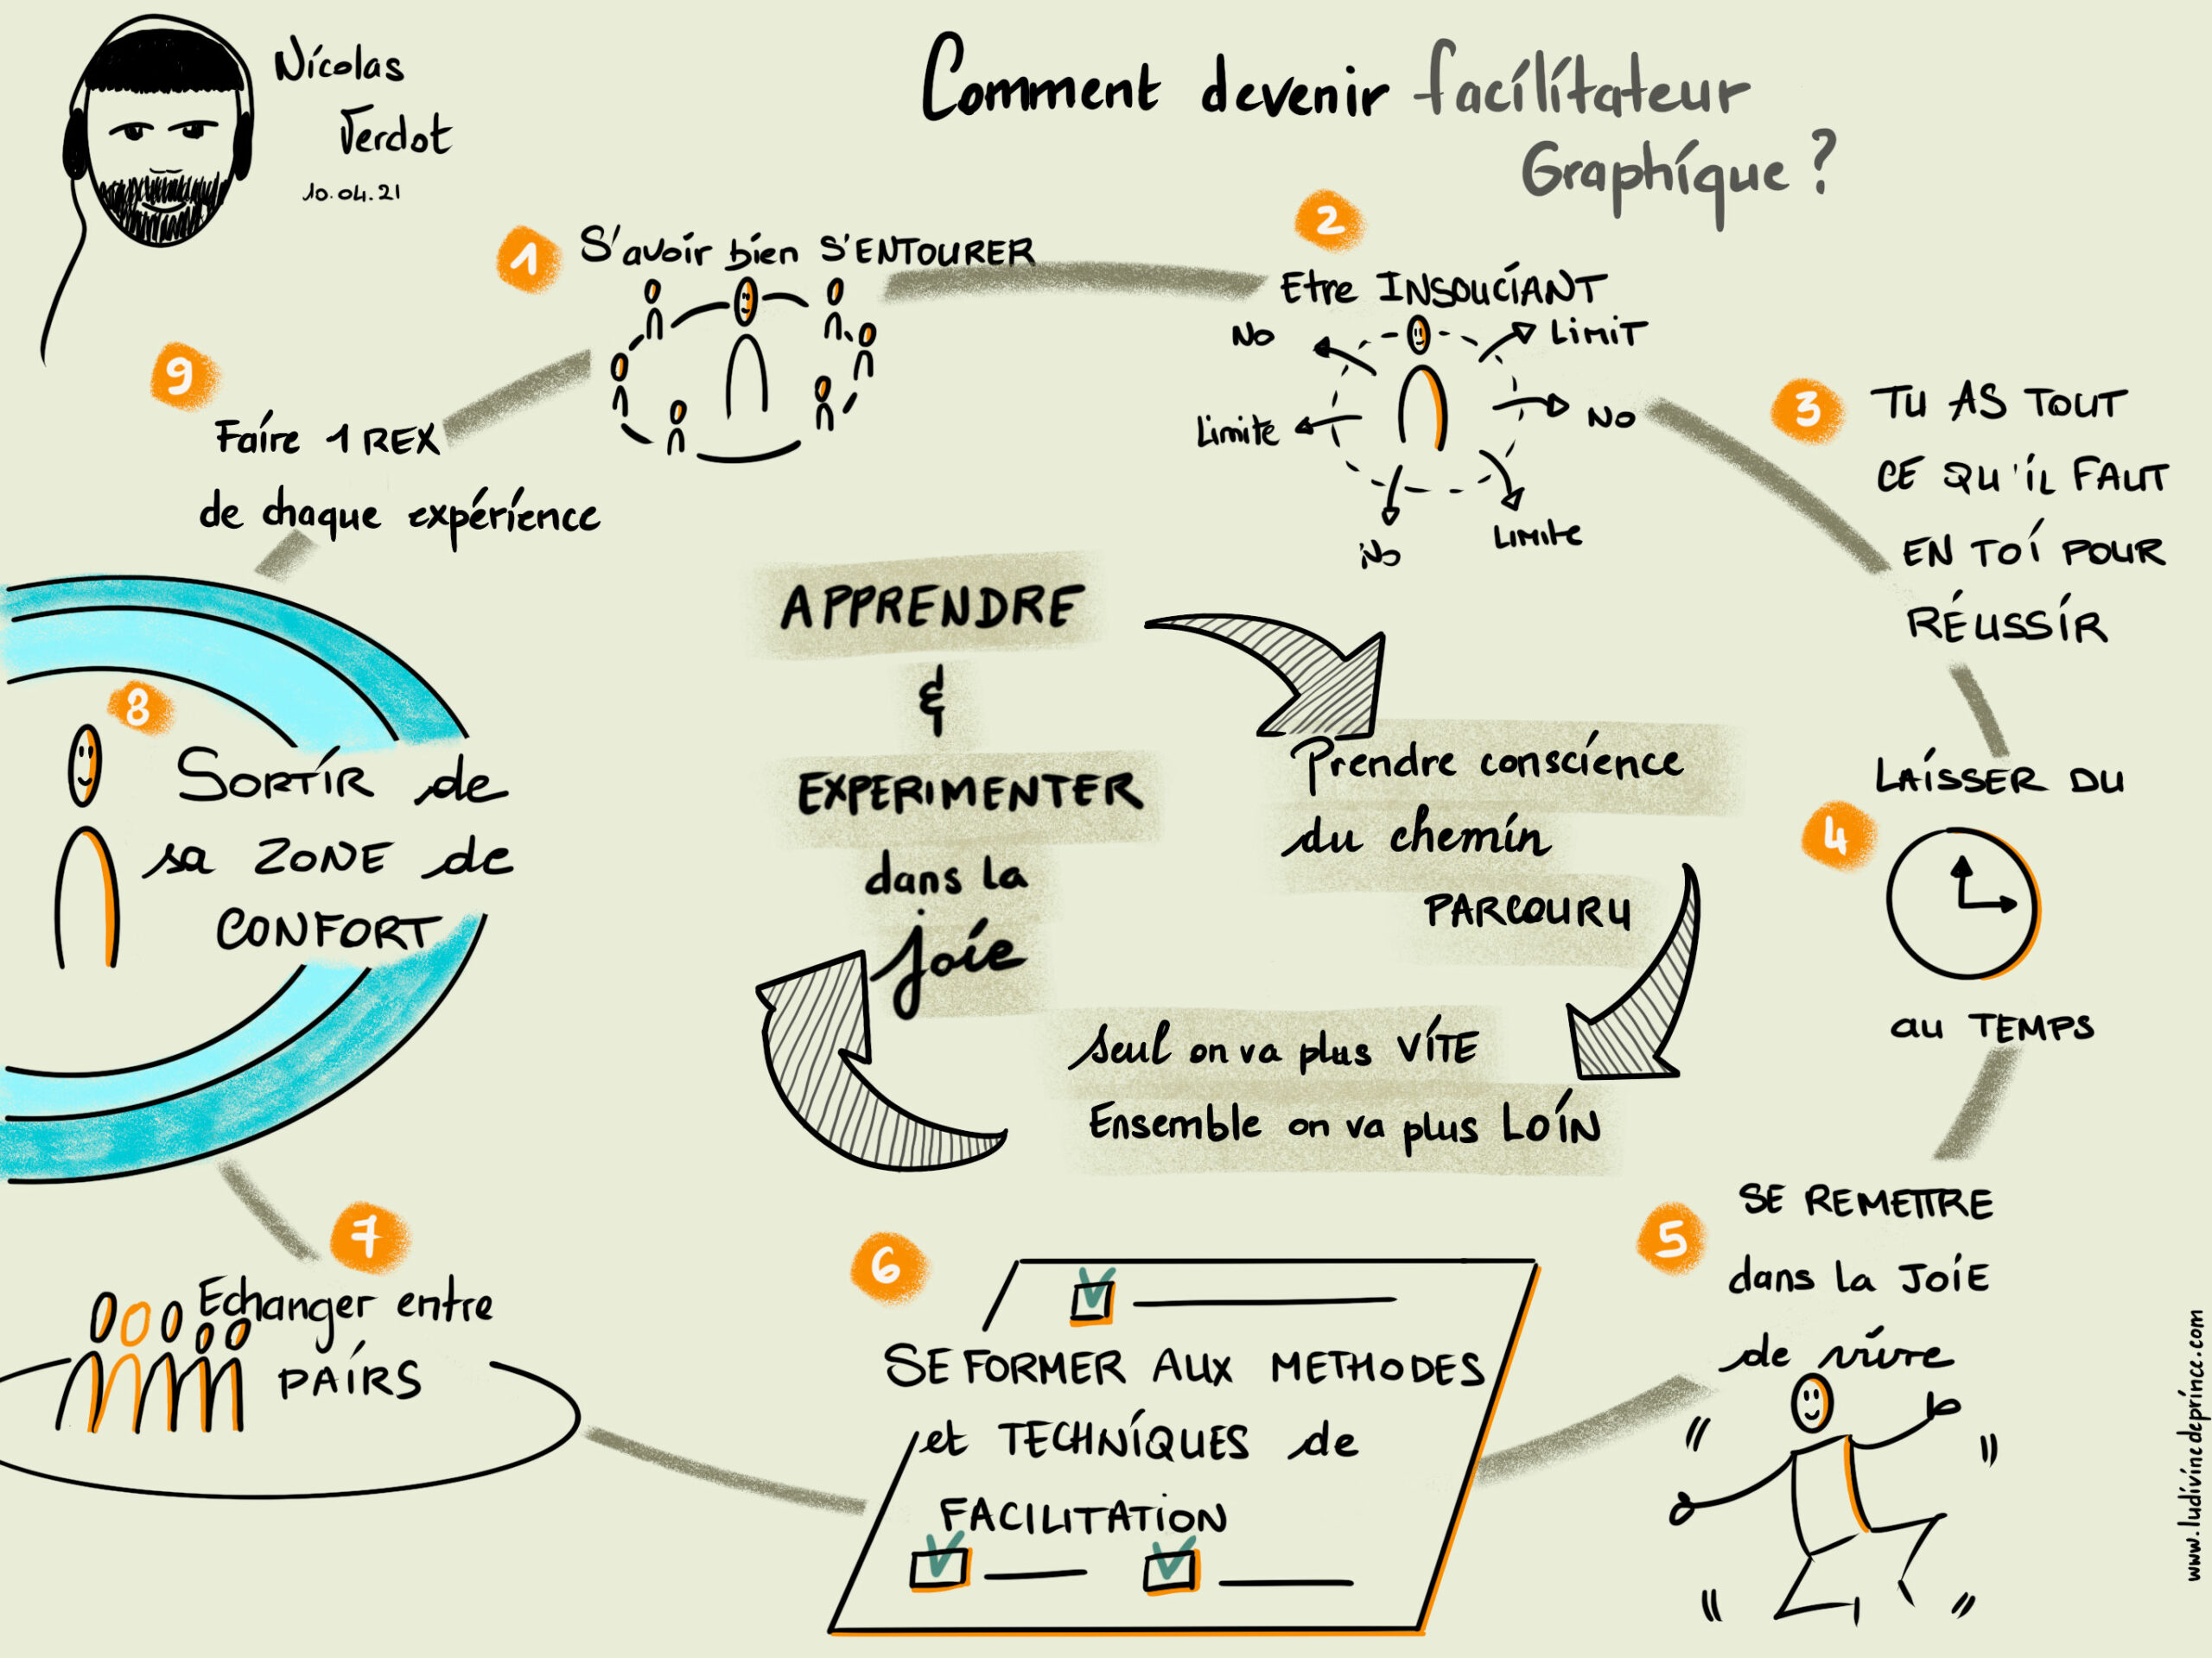 Nicolas
Verdot
10.04.21
Comment devenir facilitateur
Graphique ?
1
S'avoir bien S'ENTOURER
2
Etre INSOUCIANT
No
LimiT
Limite
No
No
Limite
3
TU AS TOUT
CE QU'IL FAUT
EN TOI POUR
RÉUSSIR
LAISSER DU
4
au TEMPS
5
SE REMETTRE
dans la JOIE
de vivre
6
SE FORMER AUX METHODES
et TECHNIQUES de
FACILITATION
7
Echanger entre
PAIRS
8
SORTIR de
sa ZONE de
CONFORT
9
Faire 1 REX
de chaque expérience
APPRENDRE
&
EXPERIMENTER
dans la
joie
Prendre conscience
du chemin
PARCOURU
Seul on va plus VITE
Ensemble on va plus LOIN
www.ludivinedeprince.com